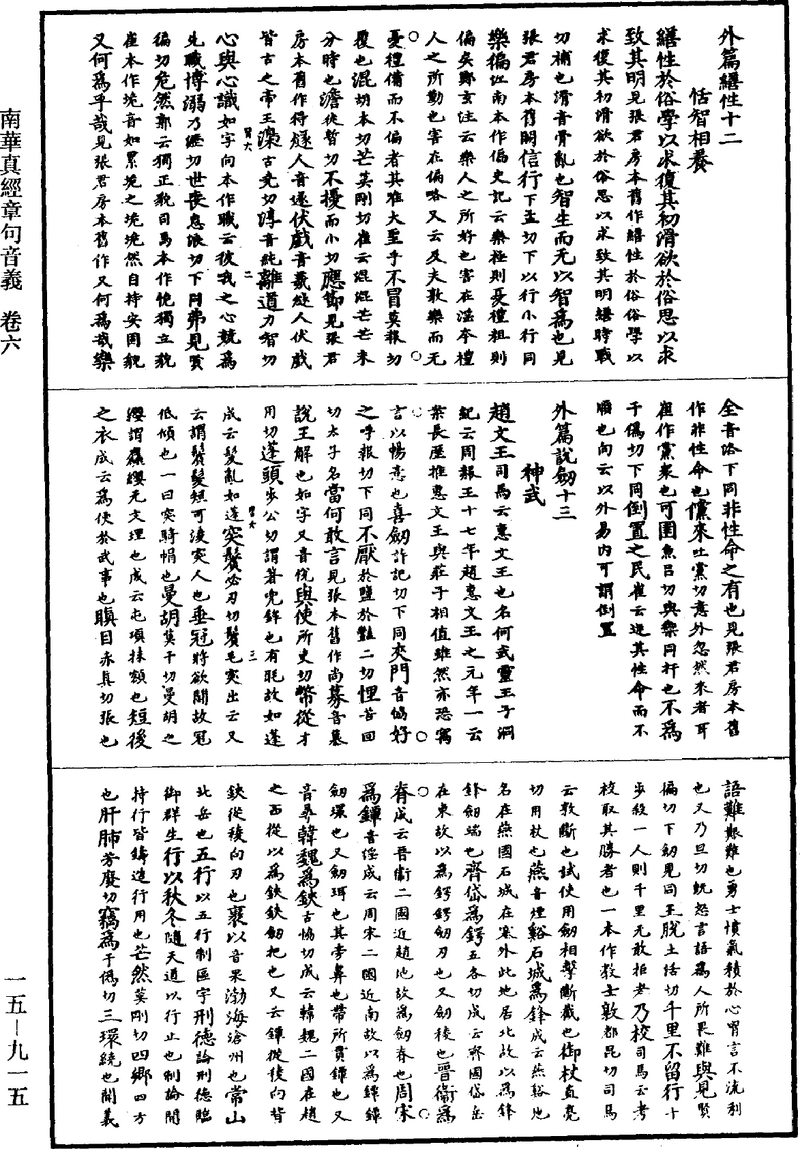 外篇繕性十二
恬智相養
繕性於俗學以求復其初滑欲於俗思以求
致其明見張君房本舊作繕性於俗俗學以
求復其初滑欲於俗思以求致其明繕時戰
切補也滑音骨亂也智生而无以智為也見
張君房本舊闕信行下孟切下以行小行同
樂徧江南本作偏史記云樂極則憂禮粗則
偏矣鄭玄注云樂人之所好也害在淫夸禮
人之所勤也害在偏略又云及夫敦樂而无
憂禮備而不偏者其唯大聖乎不冒莫報切
覆也混胡本切芒莫剛切崔云混混芒芒未
分時也澹徒暫切不擾而小切應節見張君
房本舊作得燧人音遂伏戲音羲燧人伏戲
皆古之帝王澡古堯切淳音純離道力智切
心與心識如字向本作職云彼我之心競為
先職博溺乃歷切世丧息浪切下同弗見賢
徧切危然郭云獨正貌司馬本作恑獨立貌
崔本作垝音如累垝之垝垝然自持安固貌
又何為乎哉見張君房本舊作又何為哉樂
全音洛下同非性命之有也見張君房本舊
作非性命也儻來吐黨切意外忽然來者耳
崔作黨衆也可圉魚呂切與禦同扞也不為
于偽切下同倒置之民崔云逆其性命而不
順也向云以外易内可謂倒置
外篇說劒十三
神武
趙文王司馬云惠文王也名何武靈王子洞
紀云周赧王十七年趙惠文王之元年一云
案長歷推惠文王與莊子相值雖然亦恐寓
言以暢意也喜劒許記切下同夾門音協好
之呼報切下同不厭於鹽於豔二切悝苦回
切太子名當何敢言見張本舊作尚募音慕
說王解也如字又音悅與使所吏切幣從才
用切蓬頭步公切謂著兜鉾也有毦故如蓬
成云髮亂如蓬突鬢必刃切鬢毛突出云又
云謂鬢髮短可淩突人也垂冠將欲鬬故冠
低傾也一曰突時幘也曼胡莫干切曼胡之
纓謂麤纓无文理也成云屯項抹額也短後
之衣成云為便於武事也瞋目赤真切張也
語難艱難也勇士憤氣積於心胷言不流利
也又乃旦切旣怨言語為人所畏難與見賢
徧切下劒見同王脫土活切千里不留行十
步殺一人則千里无敢拒者乃校司馬云考
校取其勝者也一本作教士敦都昆切司馬
云敦斷也試使用劒相擊斷截也御杖直亮
切用杖也燕音煙谿石城為鋒成云燕谿地
名在燕國石城在塞外此地居北故以為鋒
鋒劒端也齊岱為鍔五各切成云齊國岱岳
在東故以為鍔鍔劒刃也又劒稜也晉衞為
脊成云晉衞二國近趙地故為劒脊也周宋
為鐔音淫成云周宋二國近南故以為鐔鐔
劒環也又劒珥也其旁鼻也帶所貫鐔也又
音尋韓魏為鋏古恊切成云韓魏二國在趙
之西從以為鋏鋏劒把也又云鐔從稜向背
鋏從稜向刃也裹以音果渤海滄州也常山
北岳也五行以五行制區宇刑德論刑德臨
御群生行以秋冬隨天道以行止也制論開
持行皆鑄造行用也芒然莫剛切四鄉四方
也肝肺芳廢切竊為于偽切三環繞也聞義
南華真經章句音義　卷六
一五—九一五